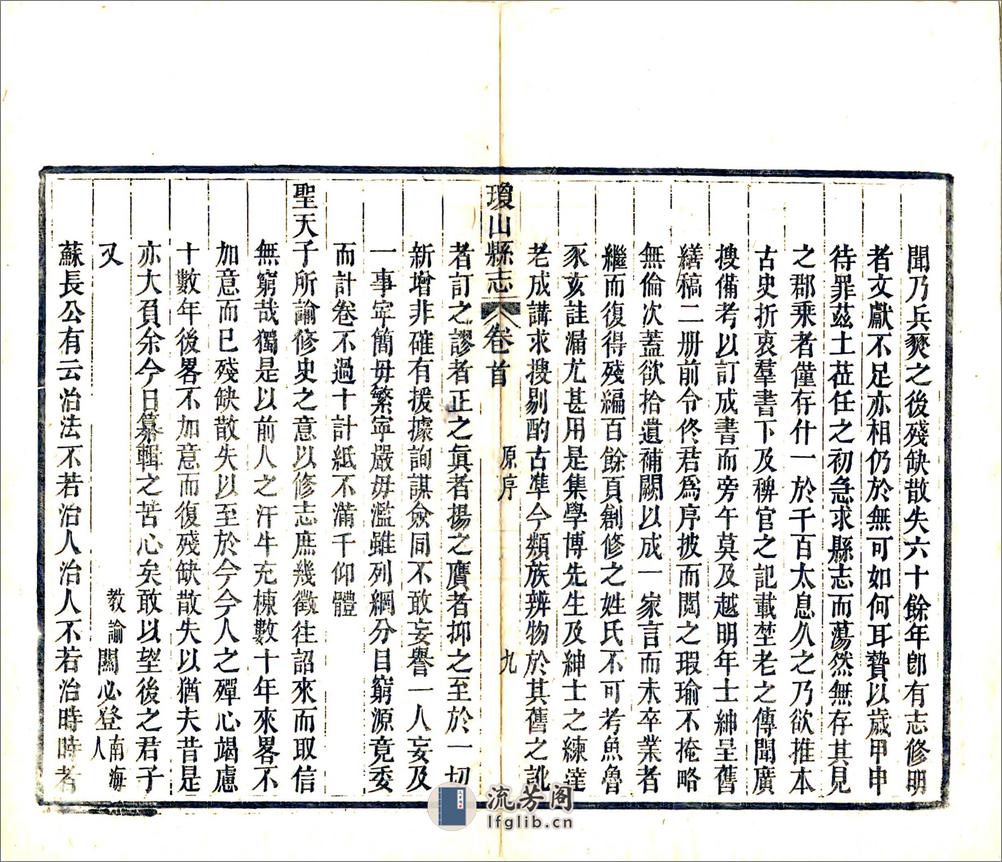 聞乃兵燹之後殘缺散失六十餘年卽有志修明
者文獻不足亦相仍於無可如何耳贊以歲甲申
待罪茲土莅任之初急求縣志而蕩然無存其見
之郡乘者僅存什一於千百太息久之乃欲推本
古史折衷羣書下及稗官之記載埜老之傳聞廣
搜備考以訂成書而旁午莫及越明年士紳呈舊
繕稿二册前令佟君爲序披而閱之瑕瑜不掩略
無倫次蓋欲拾遺補闕以成一家言而未卒業者
繼而復得殘編百餘頁創修之姓氏不可考魚魯
豕亥註漏尤甚用是集學博先生及紳士之練達
老成講求搜剔酌古準今類族辨物於其舊之訛
瓊山縣志 卷首 原序 九
者訂之謬者正之眞者揚之贋者抑之至於一切
新增非確有援據詢謀僉同不敢妄譽一人妄及
一事寧簡毋繁寧嚴毋濫雖列綱分目窮源竟委
而計卷不過十計紙不滿千仰體
聖天子所諭修史之意以修志庶幾徵往詔來而取信
無窮哉獨是以前人之汗牛充棟數十年來畧不
加意而已殘缺散失以至於今今人之殫心竭慮
十數年後畧不加意而復殘缺散失以猶夫昔是
亦大負余今日纂輯之苦心矣敢以望後之君子
又 教諭關必登南海人
蘇長公有云治法不若治人治人不若治時時者
流芳阁
lfglib.cn